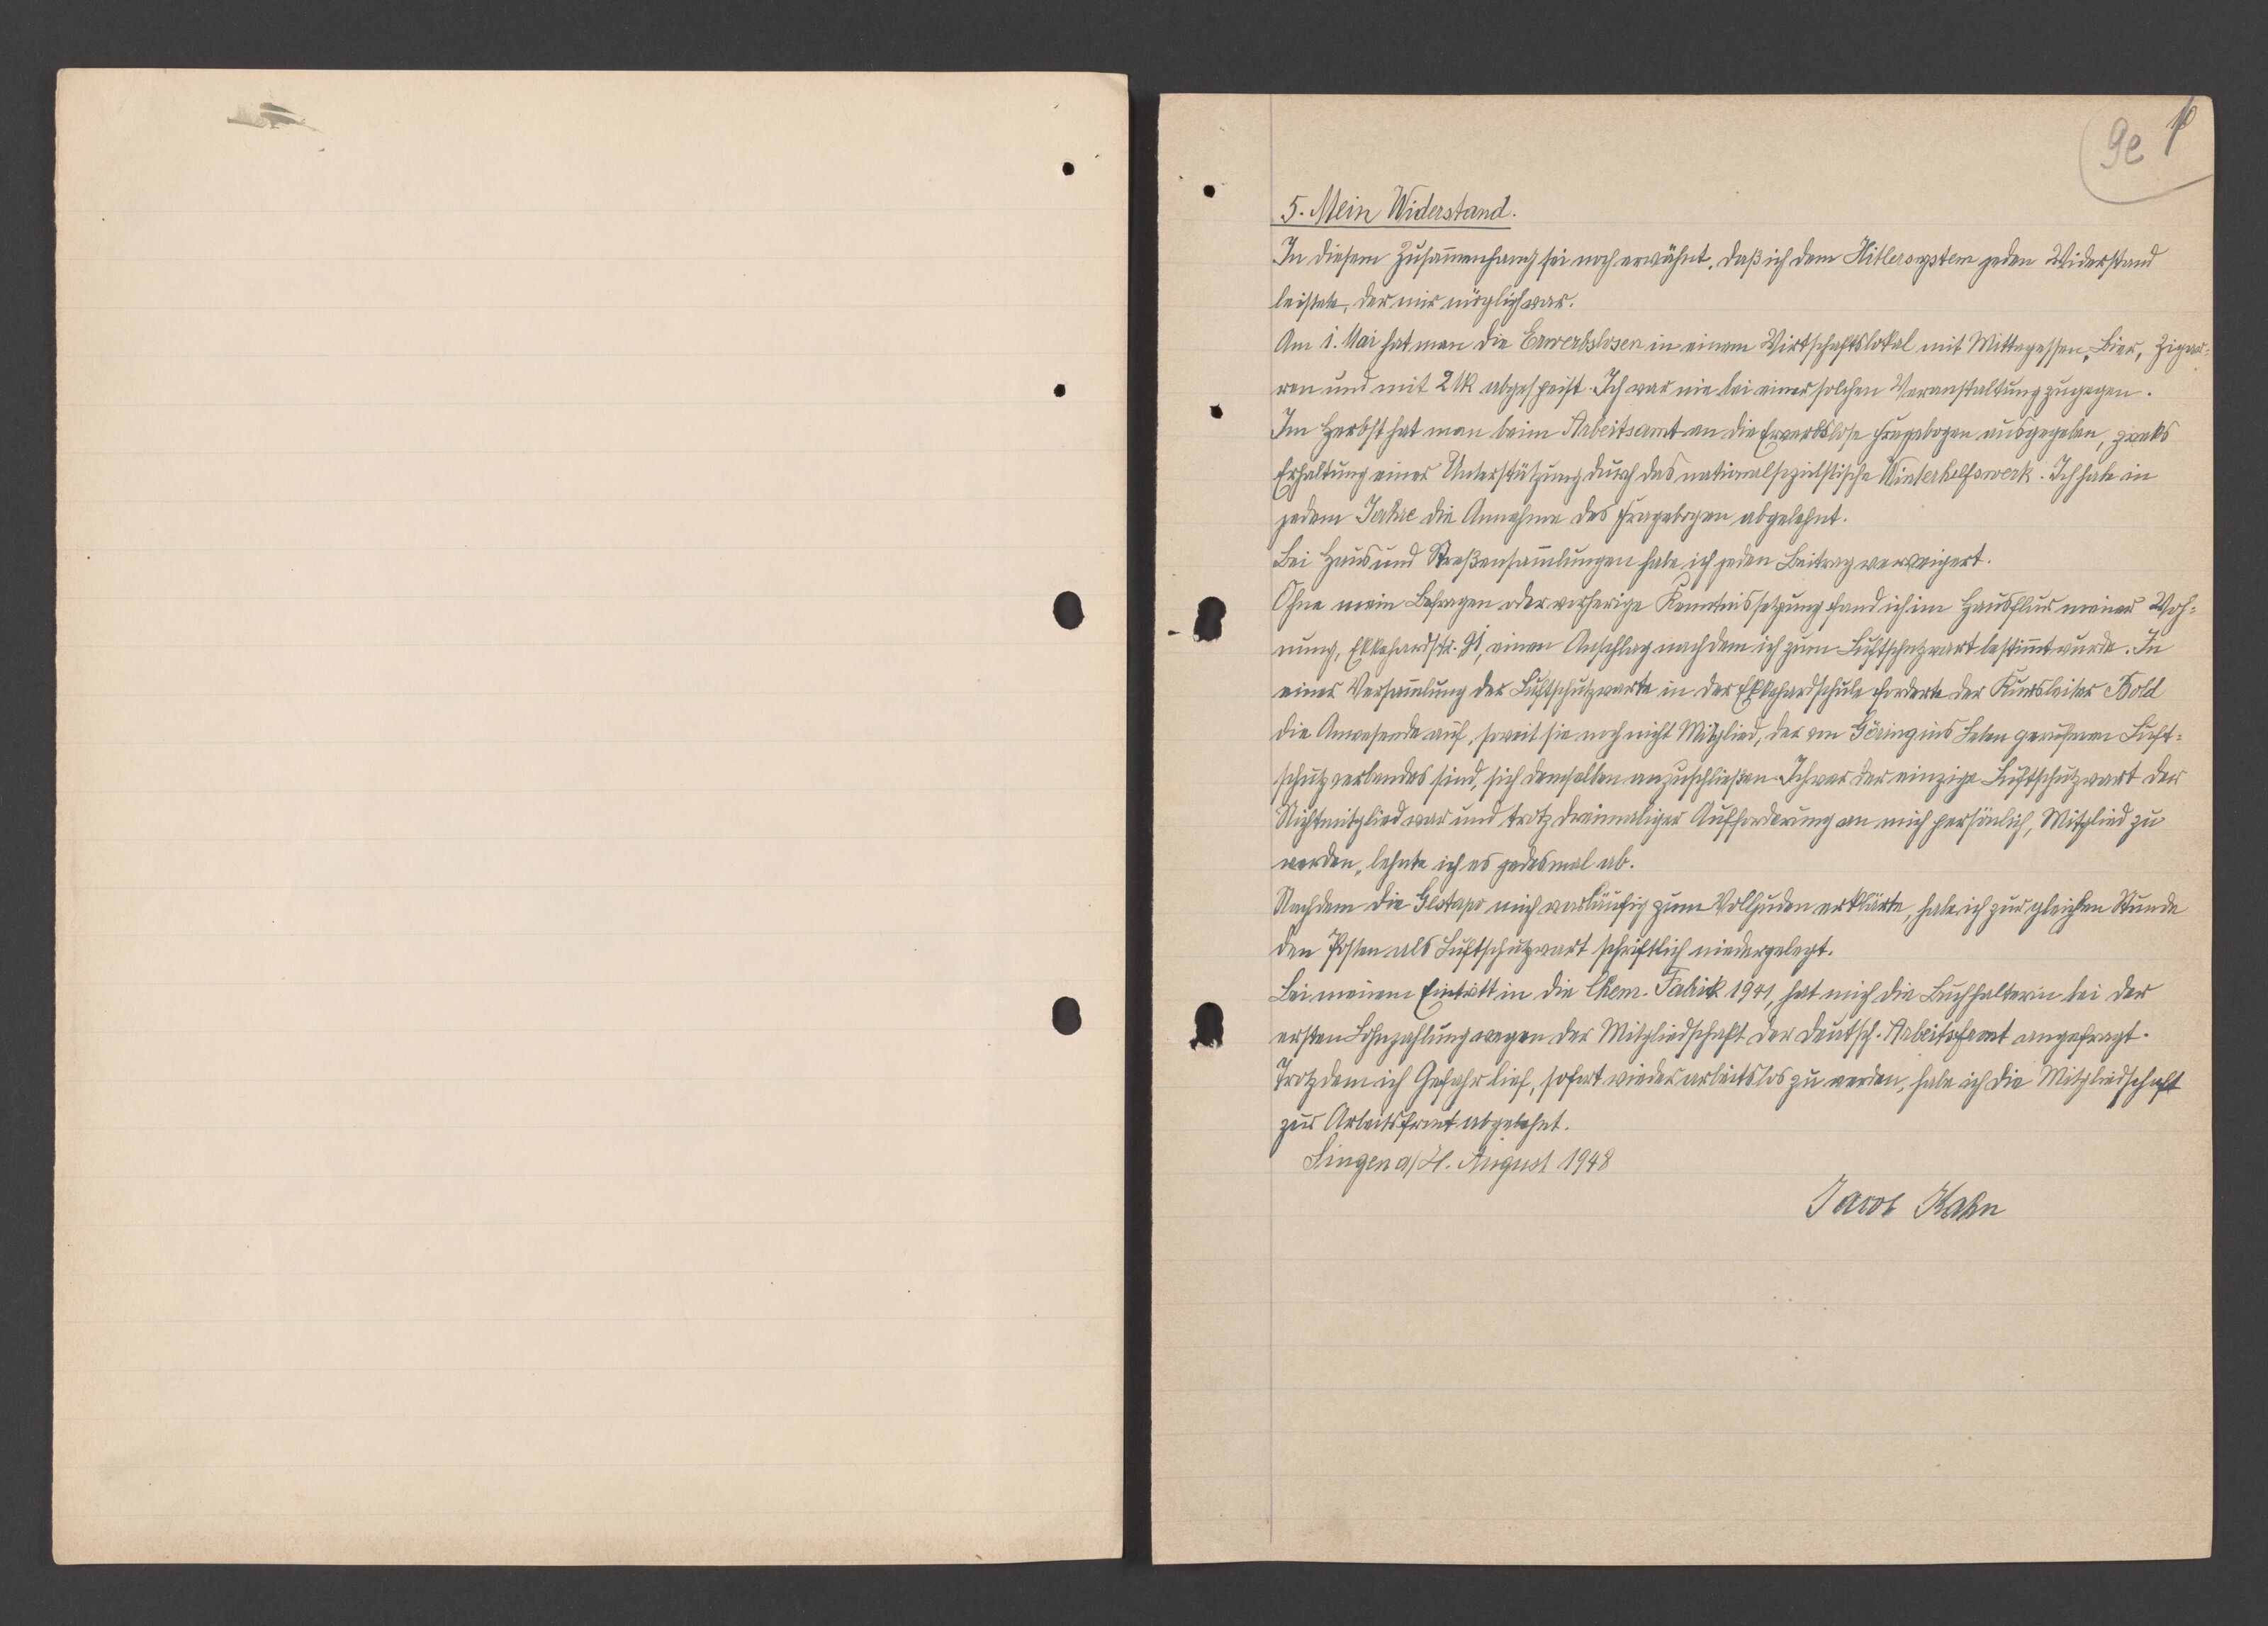 9e
5. Mein Widerstand.
In diesem Zusam̄enhang sei noch erwähnt, daß ich dem Hitlersystem jeden Widerstand
leistete, der mir möglich war.
Am 1. Mai hat man die Erwerbslosen in einem Wirtschaftslokal mit Mittagessen, Bier, Zigar=
ren und mit 2 M abgespeist. Ich war nie bei einer solchen Veranstaltung zugegen.
Im Herbst hat man beim Arbeitsamt an die Erwerbslose Fragebogen ausgegeben, zwecks
Erhaltung einer Unterstützung durch das nationalsozialistische Winterhilfswerk. Ich habe in
jedem Jahre die Annahme des Fragebogen abgelehnt.
Bei Haus und Straßensam̄lungen habe ich jeden Beitrag verweigert.
Ohne mein Befragen oder vorherige Kenntnissetzung fand ich im Hausflur meiner Woh=
nung, Ekkehardstr. 91, einen Anschlag nach dem ich zum Luftschutzwart bestim̄t wurde. In
einer Versam̄lung der Luftschutzwarte in der Ekkehardschule forderte der Kursleiter Bold
die Anwesende auf, soweit sie noch nicht Mitglied, des von Göring ins Leben gerufenen Luft=
schutzverbandes sind, sich demselben anzuschließen. Ich war der einzige Luftschutzwart der
Nichtmitglied war und trotz dreimaliger Aufforderung an mich persönlich, Mitglied zu
werden, lehnte ich es jedesmal ab.
Nachdem die Gestapo mich vorläufig zum Volljuden erklärte, habe ich zur gleichen Stunde
den Posten als Luftschutzwart schriftlich niedergelegt.
Bei meinem Eintritt in die Chem. Fabrik 1941, hat mich die Buchhalterin bei der
ersten Lohnzahlung wegen der Mitgliedschaft der Deutsch. Arbeitsfront angefragt.
Trotzdem ich Gefahr lief, sofort wieder arbeitslos zu werden, habe ich die Mitgliedschaft
zur Arbeitsfront abgelehnt.
Singen a/H. August 1948
Jacob Kahn